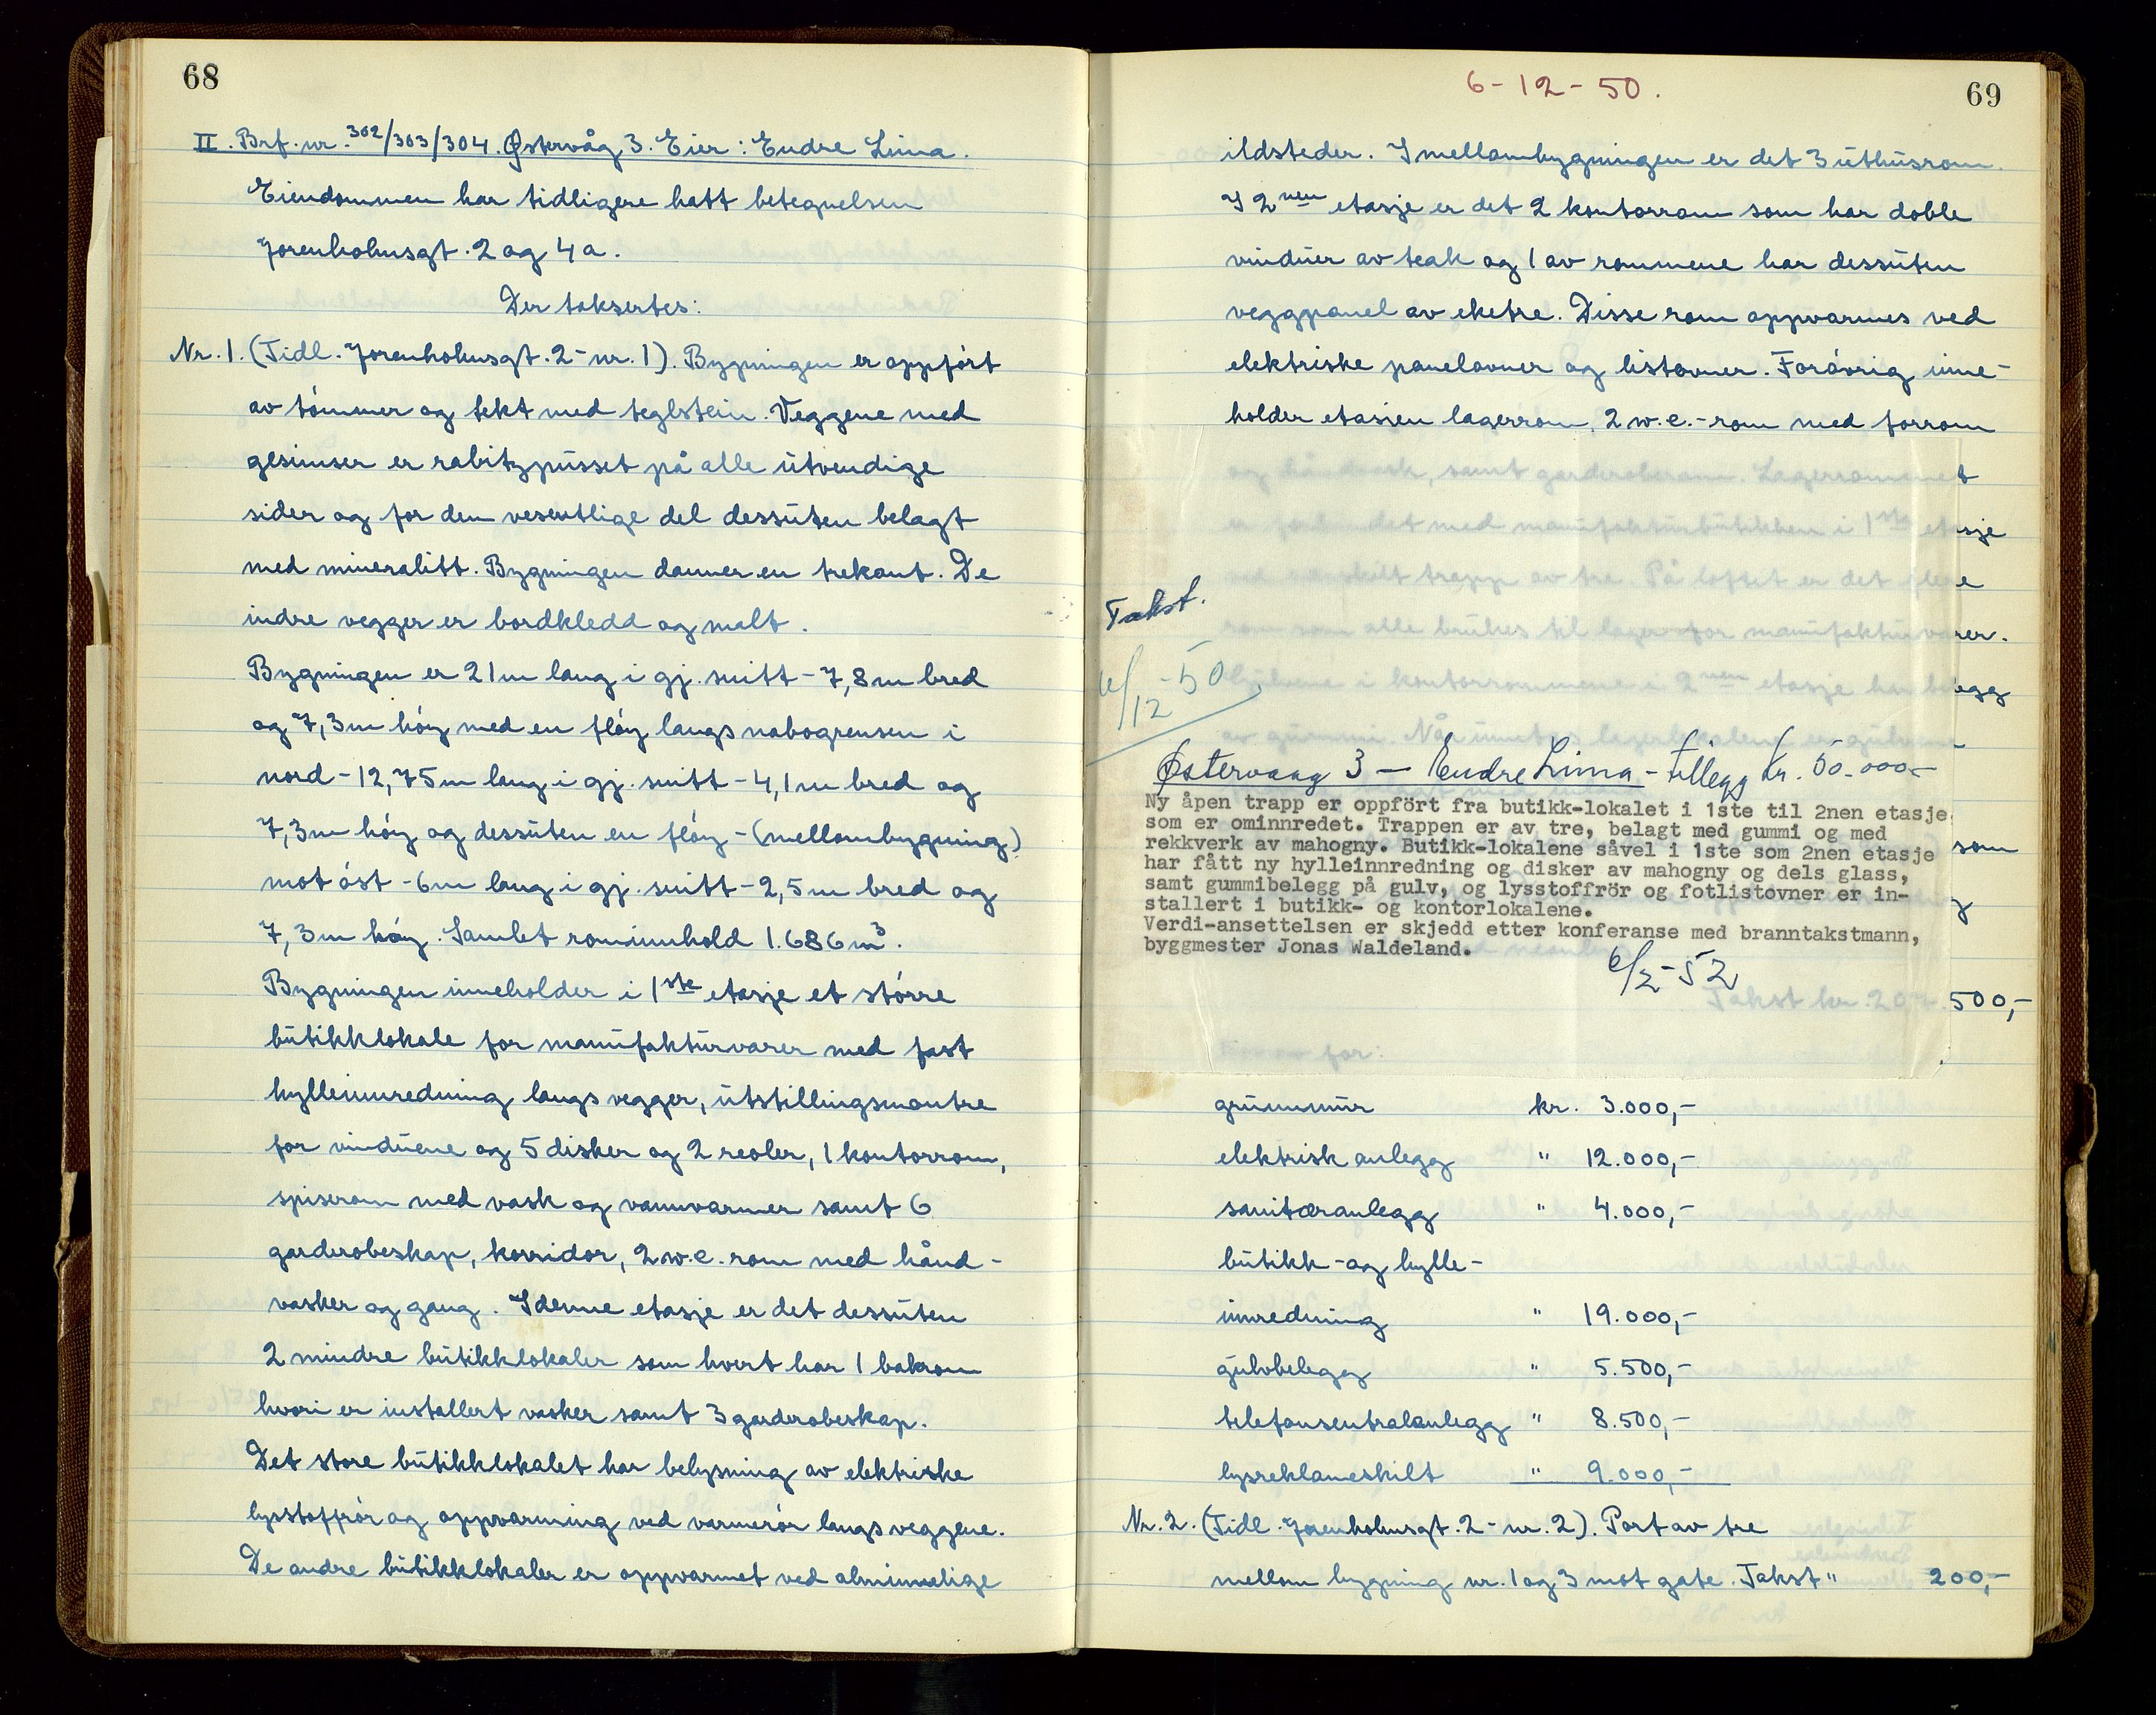 68
II. Brf. nr. 302/303/304. Østervåg 3. Eier: Endre Lima.
Eiendommen har tidligere hatt betegnelsen
Jorenholmsgt. 2 og 4a.
Der taksertes:
Nr. 1. (Tidl. Jorenholmsgt. 2 - nr. 1). Bygningen er oppført
av tömmer og tekt med teglstein. Veggene med
gesimser er rabitzpusset på alle utvendige
sider og for den vesentlige del dessuten belagt
med mineralitt. Bygningen danner en trekant. De
indre vegger er bordkledd og malt.
Bygningen er 21m lang i gj. snitt - 7,8m bred
og 7,3m höy med en flöy langs nabogrensen i
nord - 12,75m lang i gj. snitt - 4,1m bred og
7,3m höy og dessuten en flöy - (mellombygning)
mot öst - 6m lang i gj. snitt - 2,5m bred og
7,3m höy. Samlet rominnhold 1.686m³.
Bygningen inneholder i 1ste etasje et större
butikklokale for manufakturvarer med fast
hylleinnredning langs vegger, utstillingsmontre
for vinduene og 5 disker og 2 reoler, 1 kontorrom,
spiserom med vask og vannvarmer samt 6
garderobeskap, korridor, 2 w.c. rom med hånd-
vasker og gang. I denne etasje er det dessuten
2 mindre butikklokaler som hvert har 1 bakrom
hvori er installert vasker samt 3 garderobeskap.
Det store butikklokalet har belysning av elektriske
lysstoffrör og oppvarming ved varmerör langs veggene.
De andre butikklokaler er oppvarmet ved alminnelige
6-12-50.
69
ildsteder. I mellombygningen er det 3 uthusrom.
I 2nen etasje er det 2 kontorrom som har doble
vinduer av teak og 1 av rommene har dessuten
veggpanel av eketre. Disse rom oppvarmes ved
elektriske panelovner og listovner. Foråvrig inne-
holder etasjen lagerrom, 2 w.c.-rom med forrom
og håndvask, samt garderoberom. Lagerrommet
er forbundet med manufakturbutikken i 1ste etasje
ved trapp av tre. På loftet er det flere
rom som alle brukes til lager for manufakturvarer.
Gulvene i kontorrommene i 2nen etasje har belegg
av gummi.
Takst.
6/12-50
Østervaag 3 - Endre Lima - tillegg kr. 50.000,-
Ny åpen trapp er oppfört fra butikk-lokalet i 1ste til 2nen etasje
som er ominnredet. Trappen er av tre, belagt med gummi og med
rekkverk av mahogny. Butikk-lokalene såvel i 1ste som 2nen etasje
har fått ny hylleinnredning og disker av mahogny og dels glass,
samt gummibelegg på gulv, og lysstoffrör og fotlistovner er in-
stallert i butikk- og kontorlokalene.
Verdi-ansettelsen er skjedd etter konferanse med branntakstmann,
byggmester Jonas Waldeland.
6/2-52
som
g
Takst kr. 500,-
for:
grunnmur kr. 3.000,-
elektrisk anlegg " 12.000,-
sanitæranlegg " 4.000,-
butikk- og hylle-
innredning " 19.000,-
gulvbelegg " 5.500,-
telefonsentralanlegg " 8.500,-
lysreklameskilt " 9.000,-
Nr. 2. (Tidl. Jorenholmsgt. 2 - nr. 2). Port av tre
mellom bygning nr. 1 og 3 mot gate. Takst " 200,-